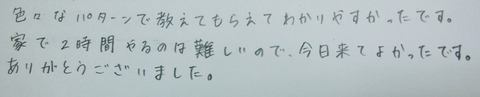 色々なパターンで教えてもらえてわかりやすかったです。
家で2時間やるのは難しいので、今日来てよかったです。
ありがとうございました。